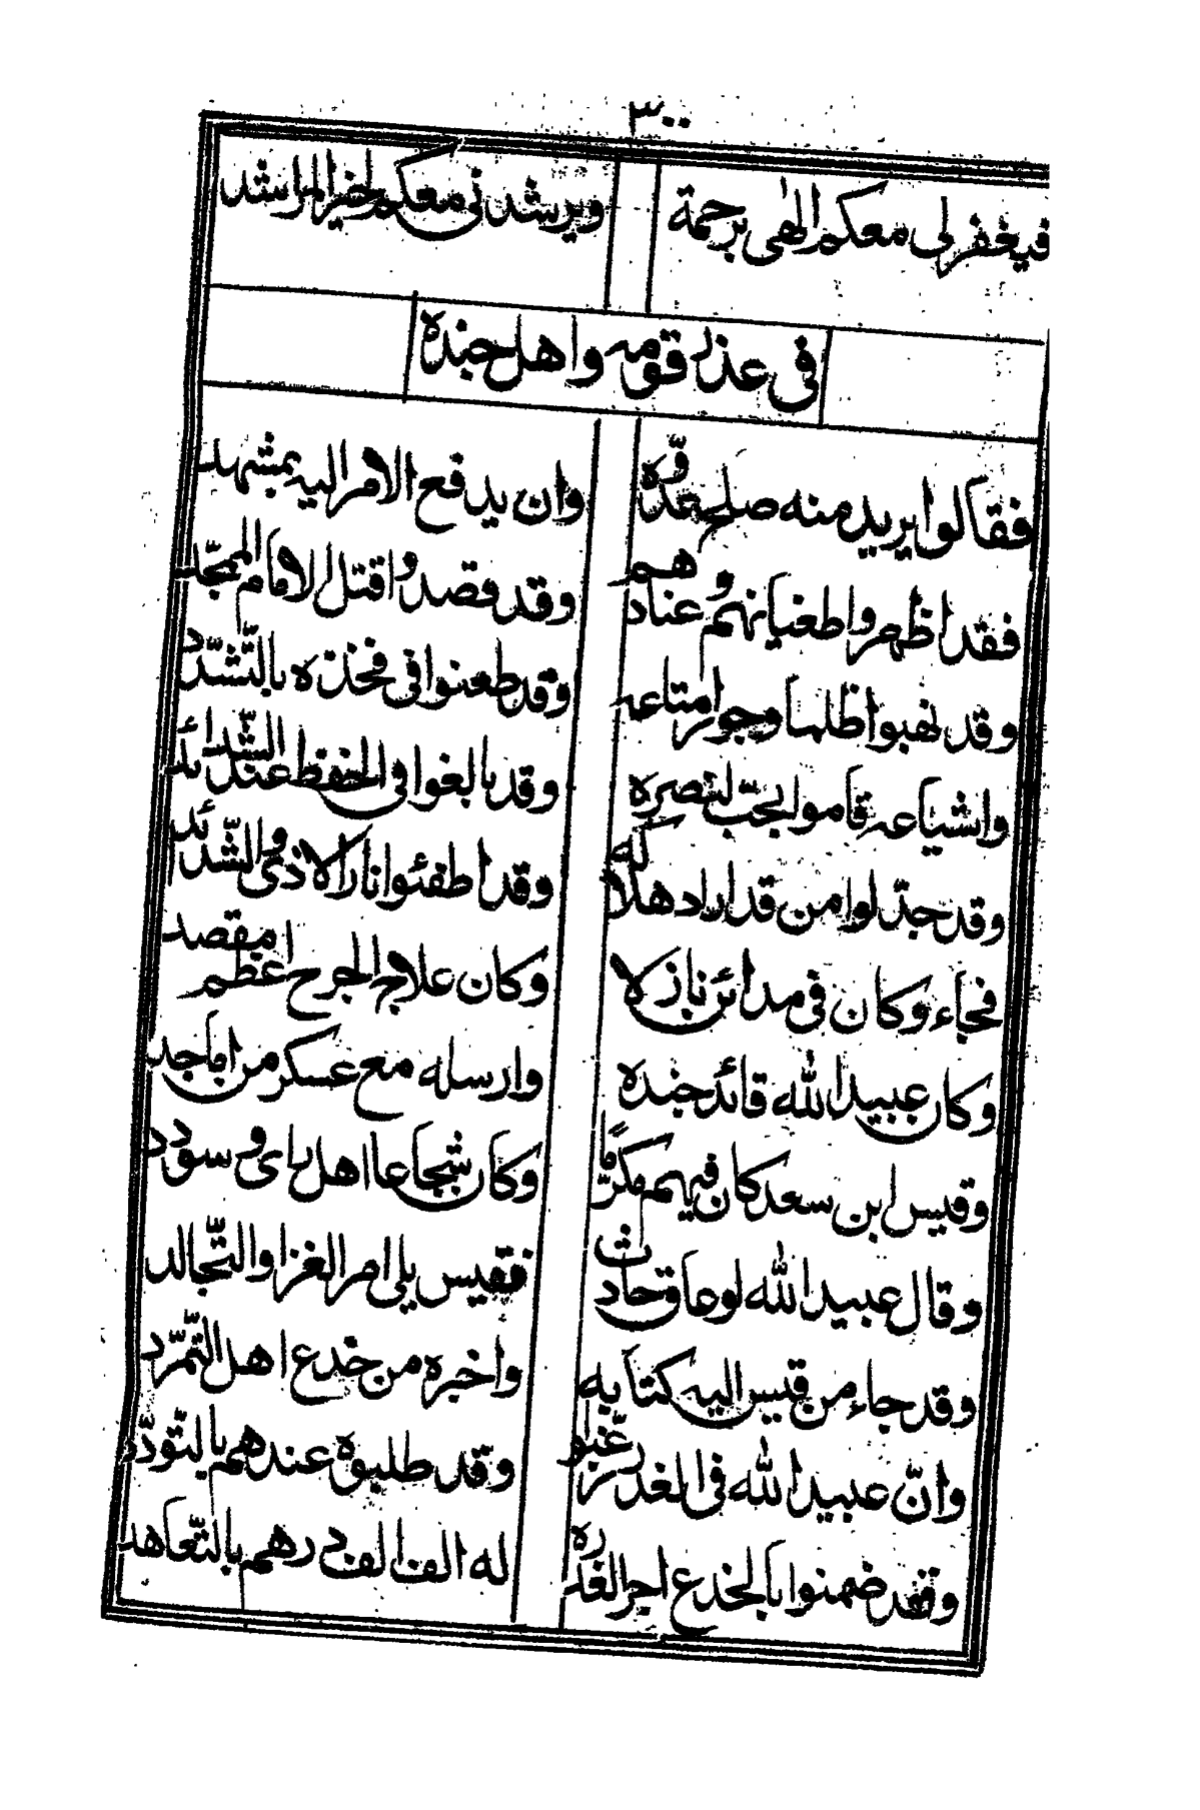 ٣٠٠
فيغفر لى معكم الهى برحمة ويرشدنى معكم لخير المراشد
فى عذر قومه واهل جنده
فقالوا يريد منه صلح عدوّه وان يدفع الامر اليه بمشهد
فقد اظهروا طغيانهم وعنادهم وقد وقصدوا قتل الامام الممجّد
وقد نهبوا ظلما وجورا متاعه وقد طعنوا فى فخذه بالتّشدّد
واشياعه قاموا لجبّ لنصره وقد بالغوا فى الحفظ عند الشّدائد
وقد جدّلوا من قد اراد هلاكه وقد اطفئوا نار الاذى والشّدائد
فجاء وكان فى مدائن نازلا وكان علاج الجرح اعظم مقصد
وكان عبيد الله قائد جنده وارسله مع عسكر من اماجد
وقيس ابن سعد كان فيهم مكرّمًا وكان شجاعا اهل راى وسودد
وقال عبيد الله لو عاق حادث فقيس يلى امر الغزا والتّجالد
وقد جاء من قيس اليه كتابه واخبره من خدع اهل التّمرّد
وانّ عبيد الله فى الغدر رغّبوا وقد طلبوه عندهم بالتّودّد
وقد ضمنوا بالخدع اجر الغدره له الف الف درهم بالتّعاهد